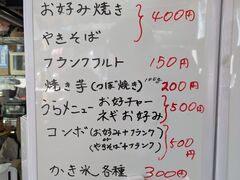 お好み焼き
やきそば
400円
フランクフルト 150円
焼き芋(つぼ焼き) 100g 200円
うらメニュー お好チャー
ネギお好み
500円
コンボ(お好み+フランク)
or
(やきそば+フランク)
500円
かき氷各種 300円